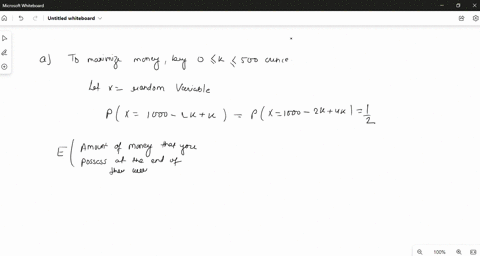 Microsoft Whiteboard
Untitled whiteboard
a) To maximize money, buy 0 ≤ k ≤ 500 ounce
Let x = random Variable
P(x = 1000 - 2k + k) = P(x = 1000 - 2k + 4k) = 1/2
E [ Amount of money that you
possess at the end of
the week
100%